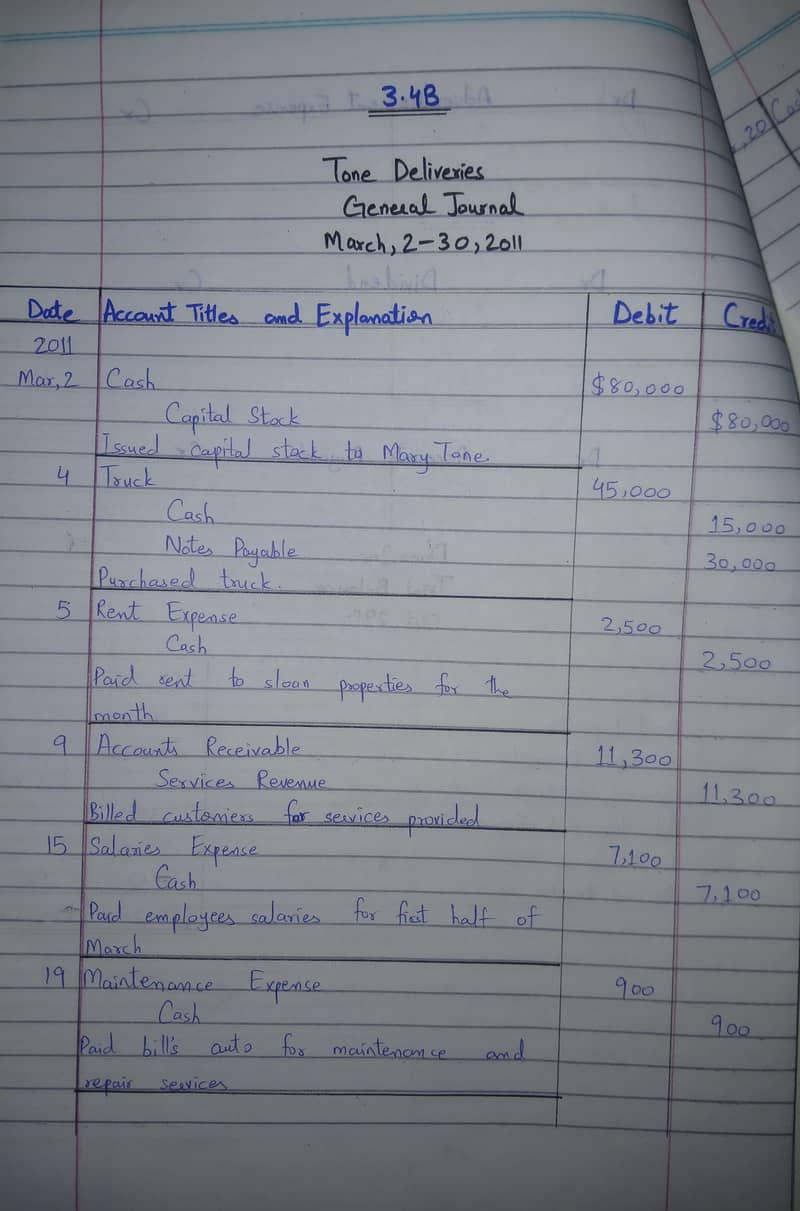 3.4B
Tone Deliveries
General Journal
March, 2-30, 2011
Date Account Titles and Explanation Debit Credit
2011
Mar, 2 Cash $80,000
Capital Stock $80,000
Issued capital stock to Mary Tone.
4 Truck 45,000
Cash 15,000
Notes Payable 30,000
Purchased truck.
5 Rent Expense 2,500
Cash 2,500
Paid rent to sloan properties for the
month
9 Accounts Receivable 11,300
Services Revenue 11,300
Billed customers for services provided
15 Salaries Expense 7,100
Cash 7,100
Paid employees salaries for first half of
March
19 Maintenance Expense 900
Cash 900
Paid bill's auto for maintenance and
repair services